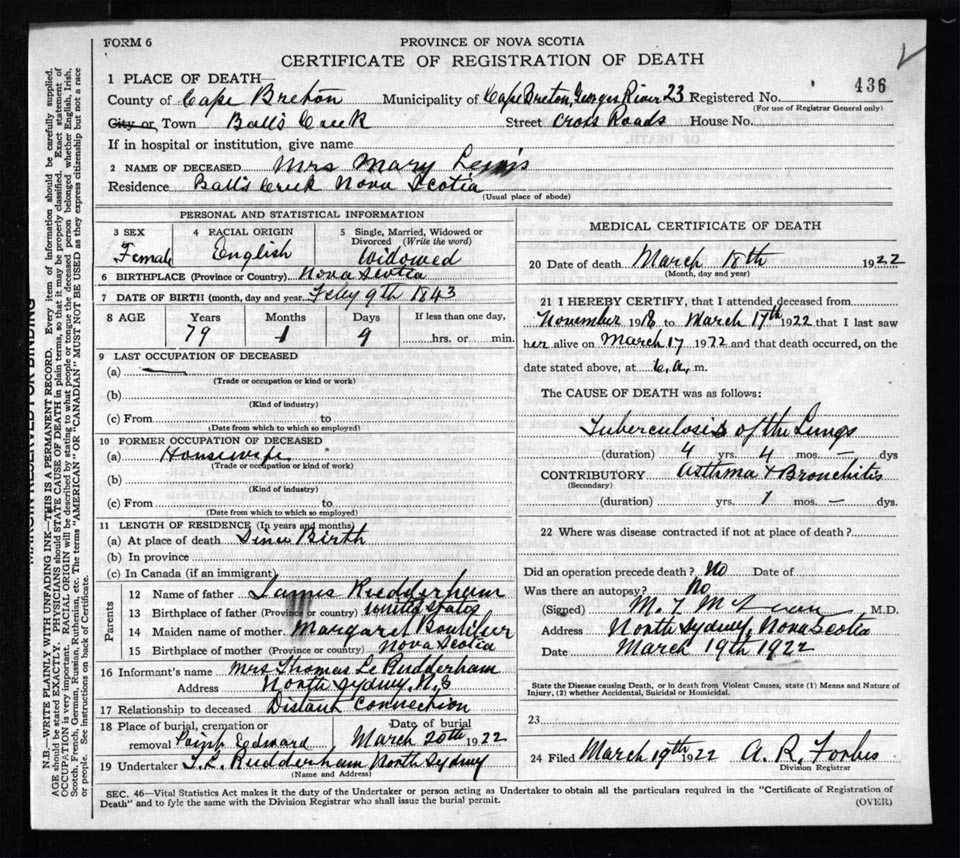 FORM 6
PROVINCE OF NOVA SCOTIA
CERTIFICATE OF REGISTRATION OF DEATH
436
1 PLACE OF DEATH—
County of Cape Breton Municipality of Cape Breton, Georges River 23 Registered No.
(For use of Registrar General only)
City or Town Balls Creek Street Cross Roads House No.
If in hospital or institution, give name
2 NAME OF DECEASED Mrs Mary Lewis
Residence Ball's Creek Nova Scotia
(Usual place of abode)
PERSONAL AND STATISTICAL INFORMATION
3 SEX 4 RACIAL ORIGIN 5 Single, Married, Widowed or Divorced (Write the word)
Female English Widowed
6 BIRTHPLACE (Province or Country) Nova Scotia
7 DATE OF BIRTH (month, day and year) Feby 9th 1843
8 AGE Years Months Days If less than one day,
79 1 9 hrs. or min.
9 LAST OCCUPATION OF DECEASED
(a) —
(Trade or occupation or kind or work)
(b)
(Kind of industry)
(c) From to
(Date from which to which so employed)
10 FORMER OCCUPATION OF DECEASED
(a) Housewife
(Trade or occupation or kind of work)
(b)
(Kind of industry)
(c) From to
(Date from which to which so employed)
11 LENGTH OF RESIDENCE (In years and months)
(a) At place of death Since Birth
(b) In province
(c) In Canada (if an immigrant)
Parents
12 Name of father James Rudderham
13 Birthplace of father (Province or country) United States
14 Maiden name of mother Margaret Boutilier
15 Birthplace of mother (Province or country) Nova Scotia
16 Informant's name Mrs Thomas L Rudderham
Address North Sydney, N.S
17 Relationship to deceased Distant Connection
18 Place of burial, cremation or Date of burial
removal Point Edward March 20th 1922
19 Undertaker T. L. Rudderham North Sydney
(Name and Address)
MEDICAL CERTIFICATE OF DEATH
20 Date of death March 18th 1922
(Month, day and year)
21 I HEREBY CERTIFY, that I attended deceased from
November 1918 to March 17th 1922 that I last saw
her alive on March 17 1922 and that death occurred, on the
date stated above, at 6. a. m.
The CAUSE OF DEATH was as follows:
Tuberculosis of the Lungs
(duration) 4 yrs. 4 mos. — dys.
CONTRIBUTORY Asthma & Bronchitis
(Secondary)
(duration) yrs. 1 mos. — dys.
22 Where was disease contracted if not at place of death?
Did an operation precede death? No Date of
Was there an autopsy? No
(Signed) M. T. M.D.
Address North Sydney, Nova Scotia
Date March 19th 1922
State the Disease causing Death, or in death from Violent Causes, state (1) Means and Nature of
Injury, (2) whether Accidental, Suicidal or Homicidal.
23
24 Filed March 19th 1922 A. R. Forbes
Division Registrar
SEC. 46—Vital Statistics Act makes it the duty of the Undertaker or person acting as Undertaker to obtain all the particulars required in the "Certificate of Registration of
Death" and to fyle the same with the Division Registrar who shall issue the burial permit.
(OVER)
MARGIN RESERVED FOR BINDING
N.B.—WRITE PLAINLY WITH UNFADING INK—THIS IS A PERMANENT RECORD. Every item of information should be carefully supplied.
AGE should be stated EXACTLY. PHYSICIANS should STATE CAUSE OF DEATH in plain terms, so that it may be properly classified. Exact statement of
OCCUPATION is very important. RACIAL ORIGIN will be described by stating to what people or tongue the deceased person belonged whether English, Irish,
Scotch, French, German, Russian, Ruthenian, etc. The terms "AMERICAN" OR "CANADIAN" MUST NOT BE USED as they express citizenship but not a race
or people. See instructions on back of Certificate.